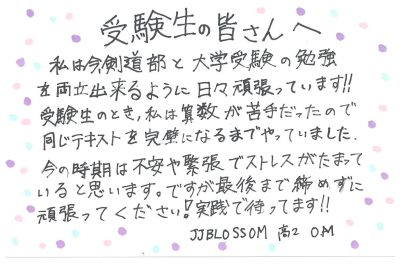 受験生の皆さんへ
私は今剣道部と大学受験の勉強
を両立出来るように日々頑張っています!!
受験生のとき、私は算数が苦手だったので
同じテキストを完璧になるまでやっていました.
今の時期は不安や緊張でストレスがたまって
いると思います。ですが最後まで締めずに
頑張ってください!実践で待ってます!!
JJBLOSSOM 高2 O.M